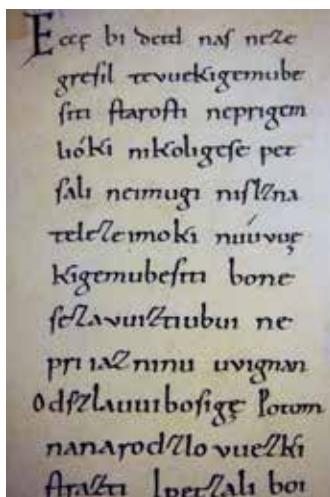 Eccę bi detd naſ neze
greſil tevuekigemube
ſiti ſtaroſti neprigem
lióki nikoligeſe pet
ſali neimugi niſlzna
telezeimoki nuúvuę
kigemubeſiti bone
ſezavuiztiubui ne
pri iazninu uvignan
Odſzlauuiboſigę Potom
nanarodzlovuezki
ſtrazti Ipetzali boi